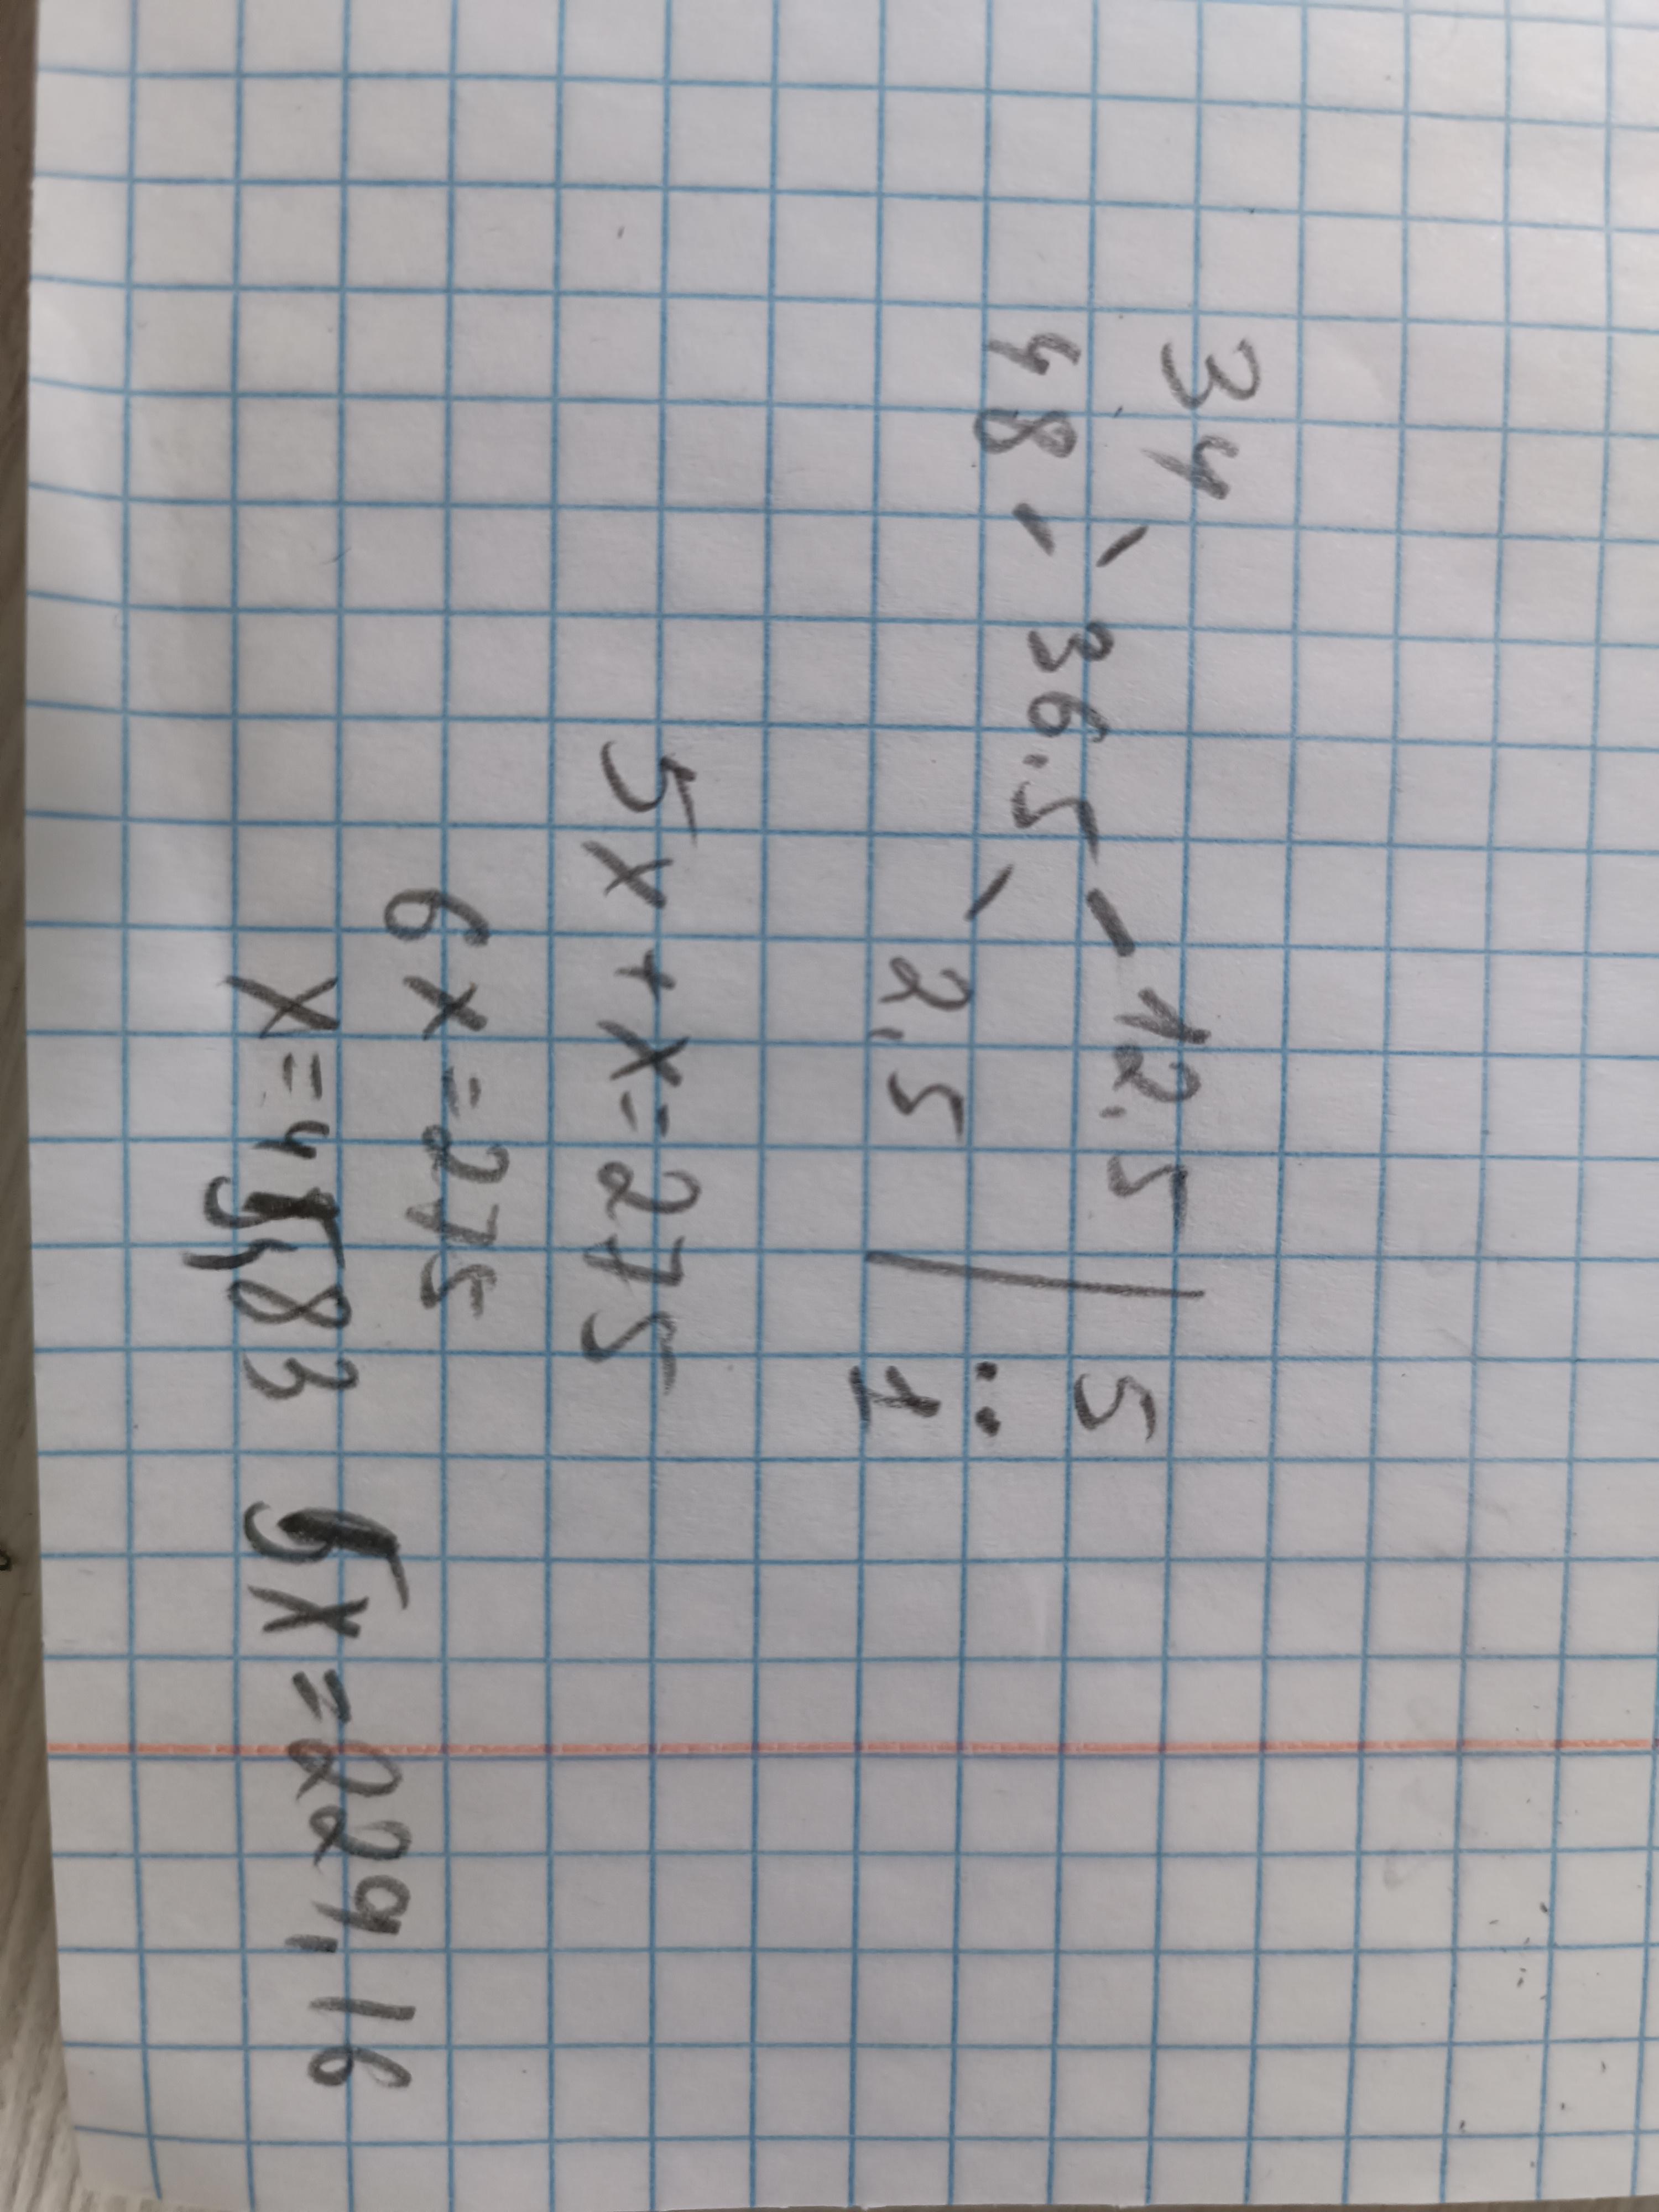 34 12.5 | 5
36.5 :
48 2.5 1
5x + x = 275
6x = 275
x = 45,83 5x = 229,16